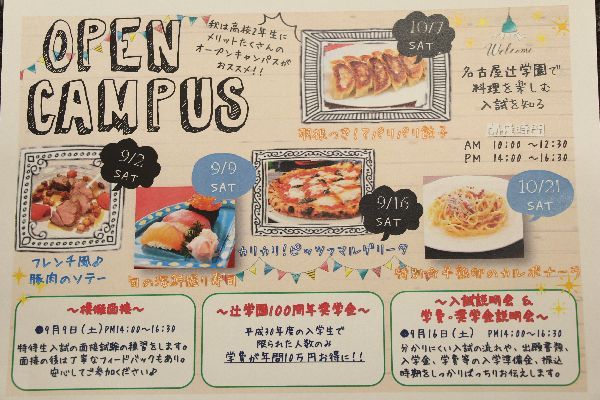 OPEN
CAMPUS
秋は高校2年生に
メリットたくさんの
オープンキャンパスが
おススメ!!
10/7
SAT
Welcome
名古屋辻学園で
料理を楽しむ
入試を知る
AM 10:00 ～12:30
PM 14:00 ～16:30
羽根つき!パリパリ餃子
9/2
SAT
9/9
SAT
9/16
SAT
10/21
SAT
フレンチ風♪
豚肉のソテー
旬の海鮮握り寿司
カリカリ!ピッツァマルゲリータ
カルボナーラ
～模擬面接～
●9月9日(土)PM14:00～16:30
特待生入試の面接試験の練習をします。
面接の後は丁寧なフィードバックもあり。
安心してご参加ください♪
～辻学園100周年奨学金～
平成30年度の入学生で
限られた人数のみ
学費が年間10万円お得に!!
～入試説明会 &
学費・奨学金説明会～
●9月16日(土) PM14:00～16:30
分かりにくい入試の流れや、出願書類、
入学金、学費等の入学準備金、振込
時期をしっかりばっちりお伝えします。